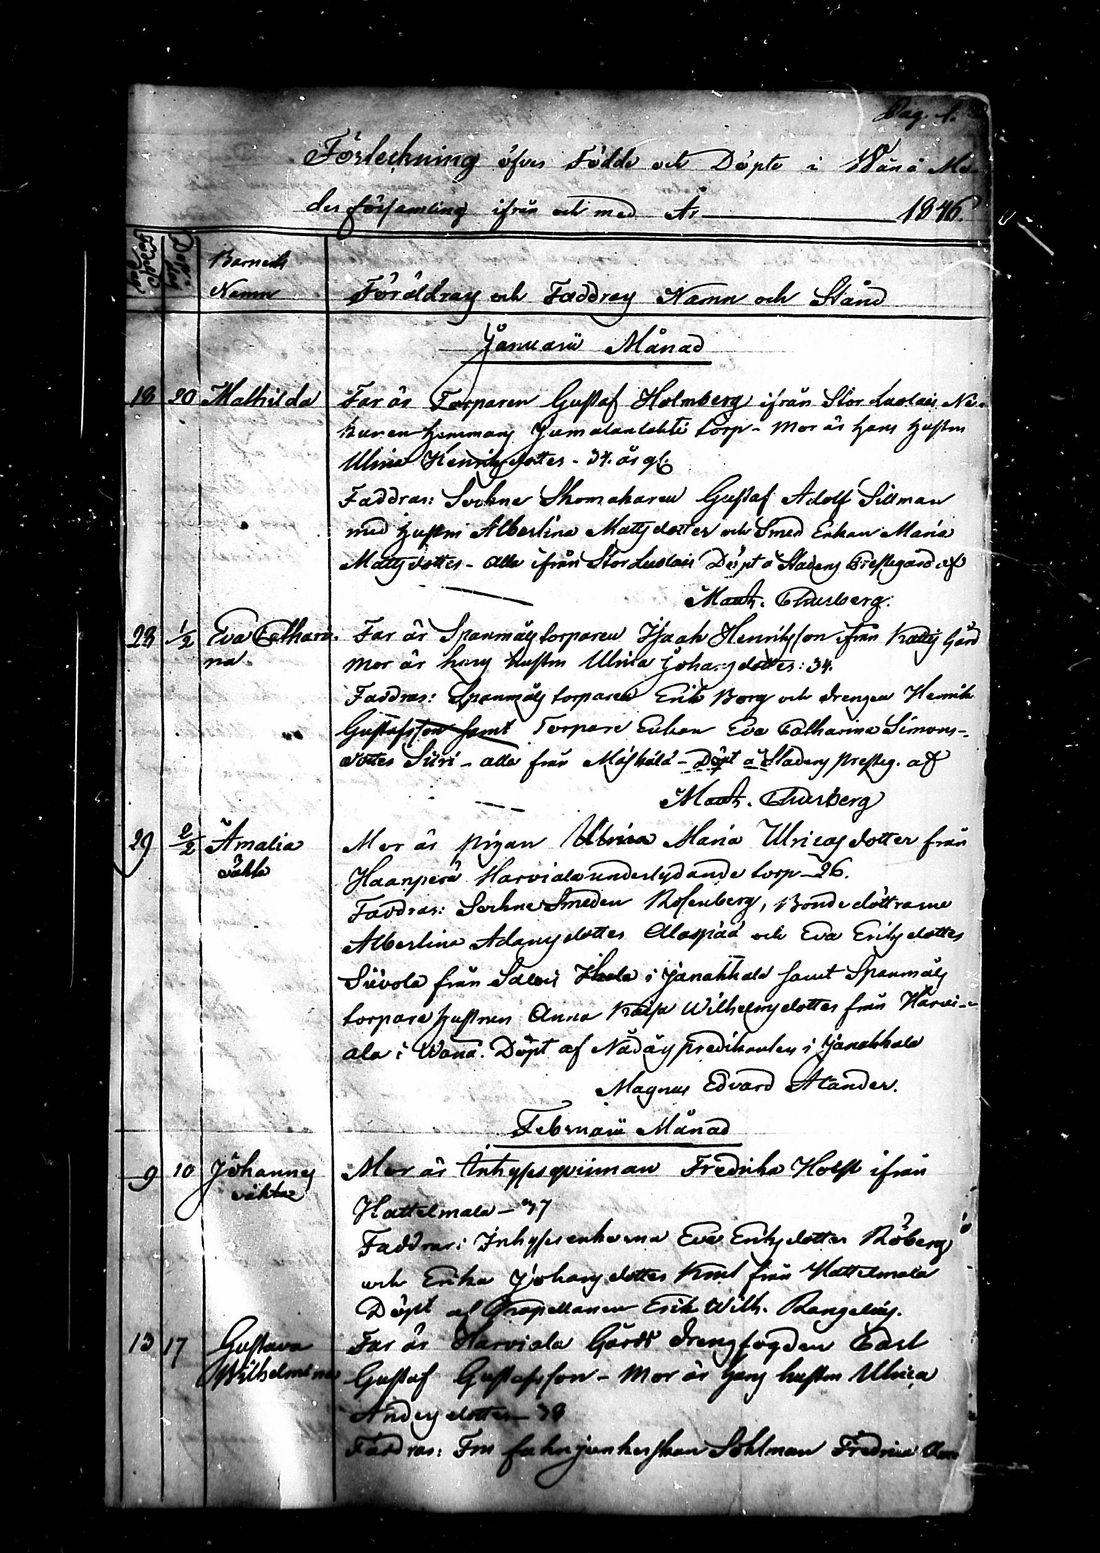 Pag. 1.
Förteckning öfver Födde och Döpte i Wånå Mo-
derförsamling ifrån och med År 1846.
Född dag
Döpt dag
Barnets
Namn
Föräldrars och Faddrars Namn och Stånd
Januarii Månad
18 20 Mathilda Far är Torparen Gustaf Holmberg ifrån Stor Luolais
hemmans torp - Mor är hans hustru
Ulrica Henriksdotter - 34. års gl.
Faddrar: Sockne Skomakaren Gustaf Adolf Sillman
med hustru Albertina Mattsdotter och Smed Enkan Maria
Mattsdotter - alla ifrån Stor Luolais Döpt å Stadens Prestegård af
Matth. Thusberg.
28 1/2 Eva Cathari- Far är Spanmåls torparen Isaak Henriksson ifrån Kattis Gård
na. Mor är hans hustru Ulrica Johansdotter: 34.
Faddrar: Spanmåls torparen Erik Borg och drengen Henrik
Gustafsson samt Torpare Enkan Eva Catharina Simons-
dotter Siiri - alla från - Döpt å Stadens presteg. af
Matth. Thusberg
29 2/2 Amalia Mor är pigan Ulrica Maria Ulricasdotter från
oäkta Haanperä Harviala underlydande torp - 26.
Faddrar: Sockne Smeden Rosenberg, Bonde döttrarne
Albertina Adamsdotter Alaspää och Eva Eriksdotter
Siivola från i Janakkala samt Spanmåls
torpare hustrun Anna Kajsa Wilhelmsdotter från Harvi-
ala i Wånå. Döpt af Nådårspredikanten i Janakkala
Magnus Edvard Alander.
Februarii Månad
9 10 Johannes Mor är Inhyses qvinnan Fredrika Holst ifrån
oäkta
Hattelmala - 37
Faddrar: Inhysesenkorna Eva Eriksdotter Röberg
och Erika Johansdotter från Hattelmala
Döpt af Chapellanen Erik Wilh. Rangelius.
13 17 Gustava Far är Harviala Gårds drengfogden Carl
Wilhelmina Gustaf Gustafsson - Mor är hans hustru Ulrica
Andersdotter - 38
Faddrar: Fru fahnjunkerskan Sohlman Fredrica